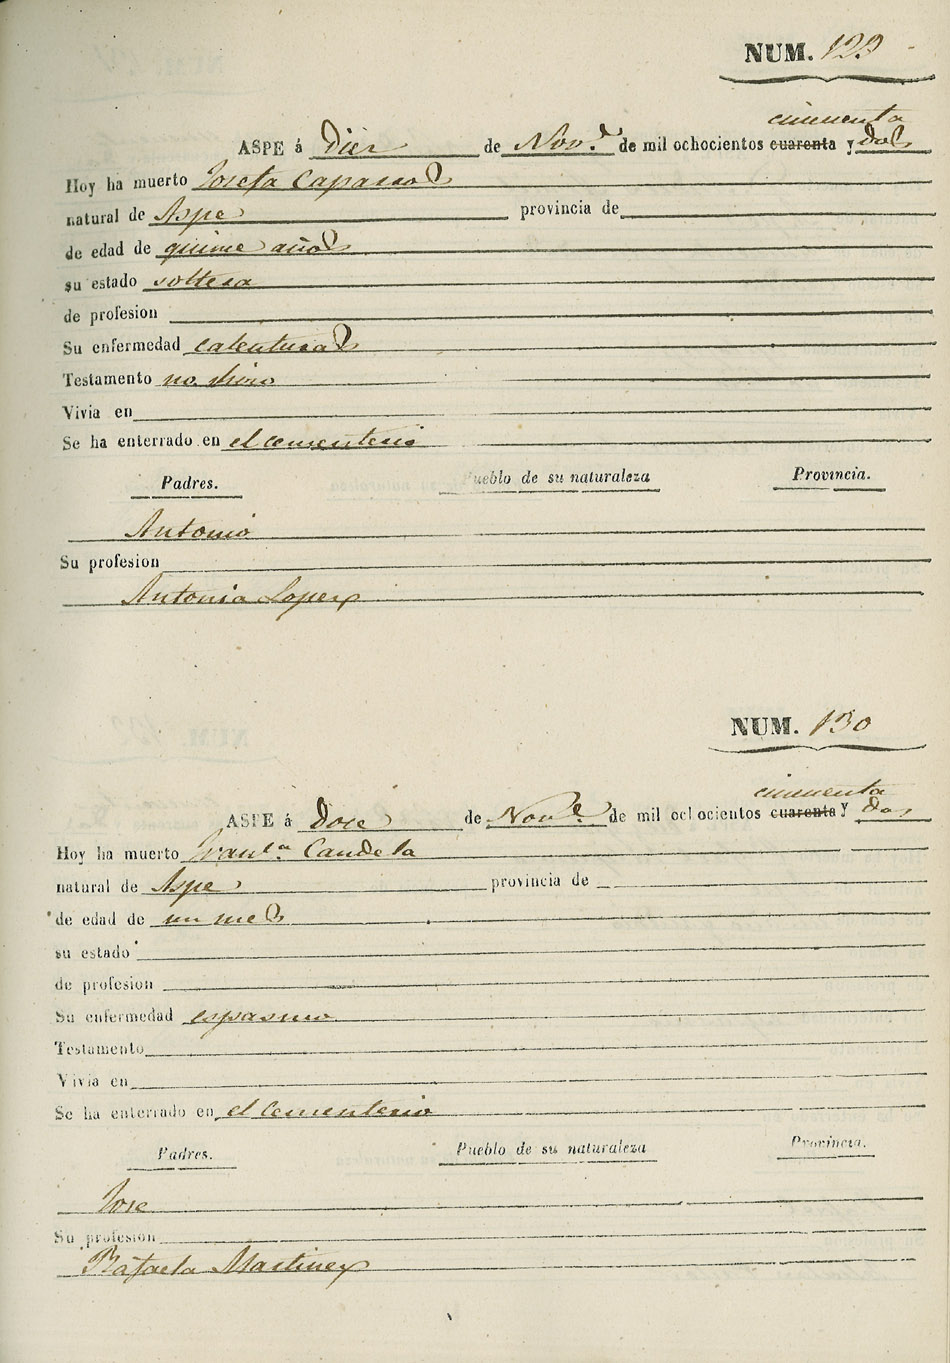 NUM. 129
cincuenta
ASPE á Diez de Nov.e de mil ochocientos cuarenta y dos
Hoy ha muerto Josefa Caparros
natural de Aspe provincia de
de edad de quince años
su estado soltera
de profesion
Su enfermedad calenturas
Testamento no hizo
Vivia en
Se ha enterrado en el cementerio
Padres. Pueblo de su naturaleza Provincia.
Antonio
Su profesion
Antonia Lopez
NUM. 130
cincuenta
ASPE á Doce de Nov.e de mil ochocientos cuarenta y dos
Hoy ha muerto Candela
natural de Aspe provincia de
de edad de un mes
su estado
de profesion
Su enfermedad espasmo
Testamento
Vivia en
Se ha enterrado en el cementerio
Padres. Pueblo de su naturaleza Provincia.
Jose
Su profesion
Rafaela Martinez